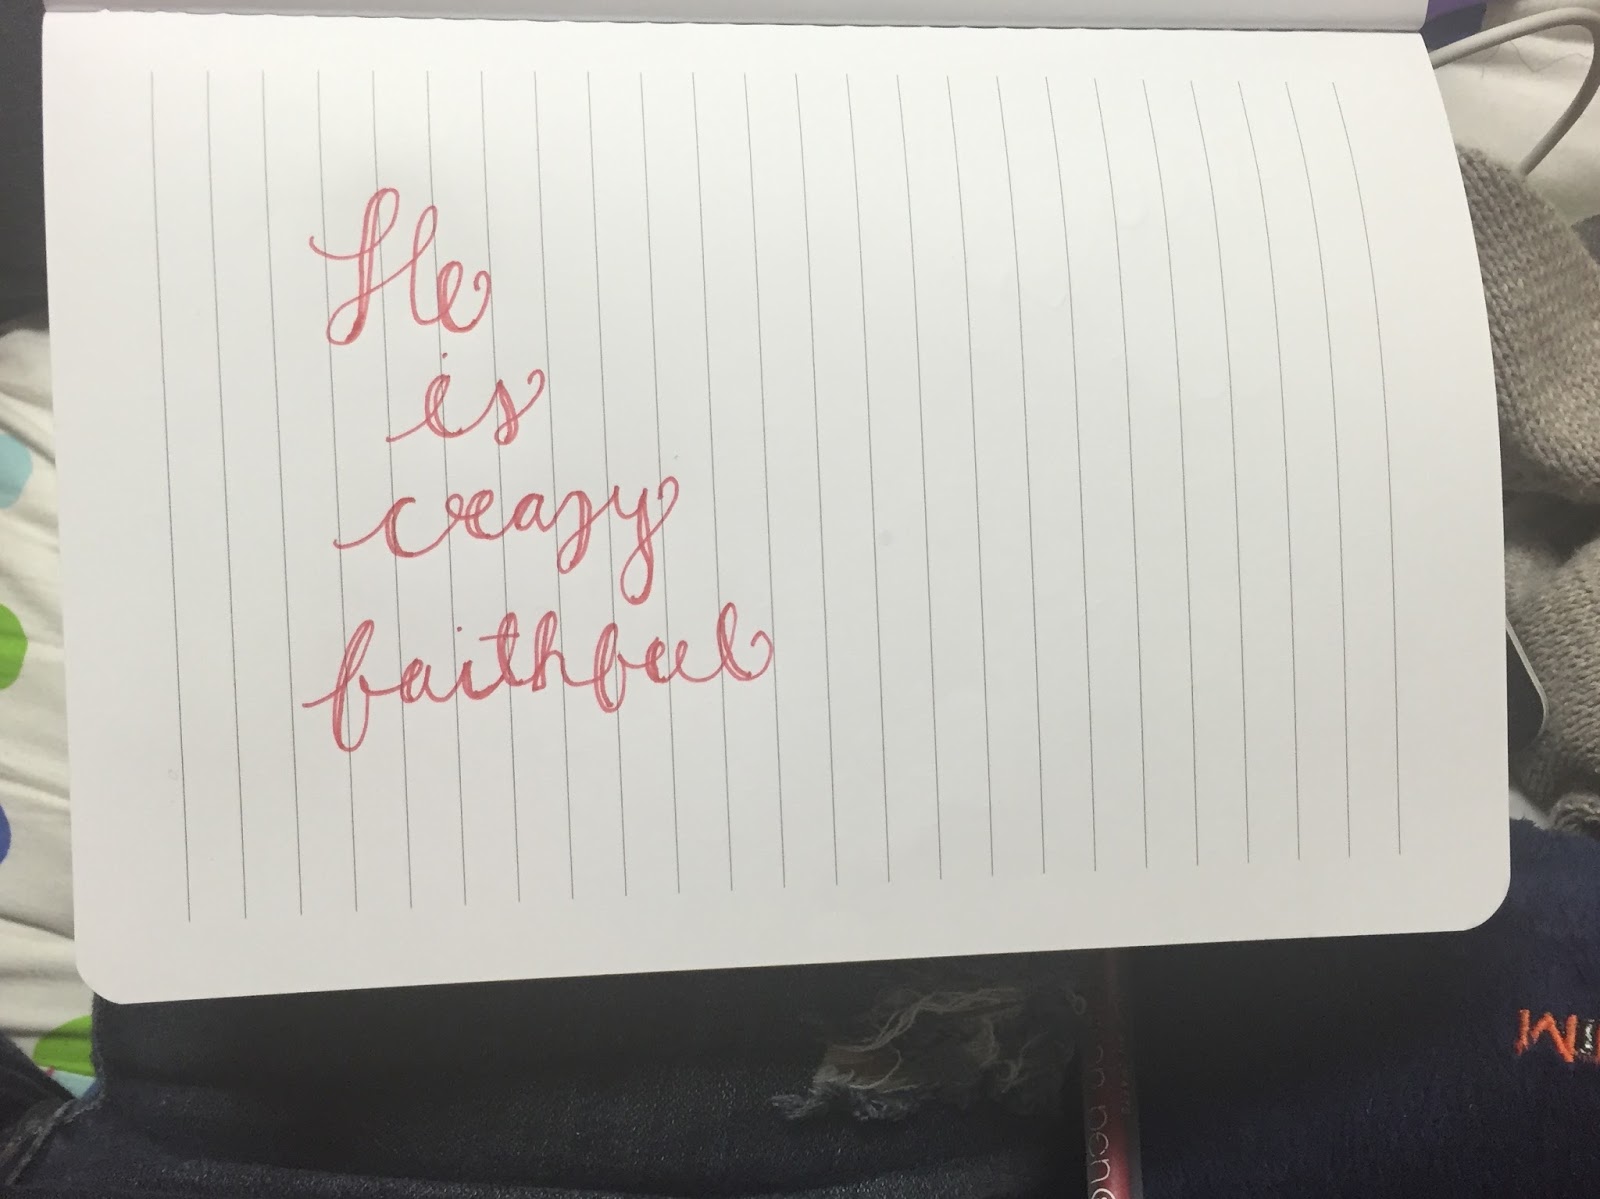 He
is
crazy
faithful